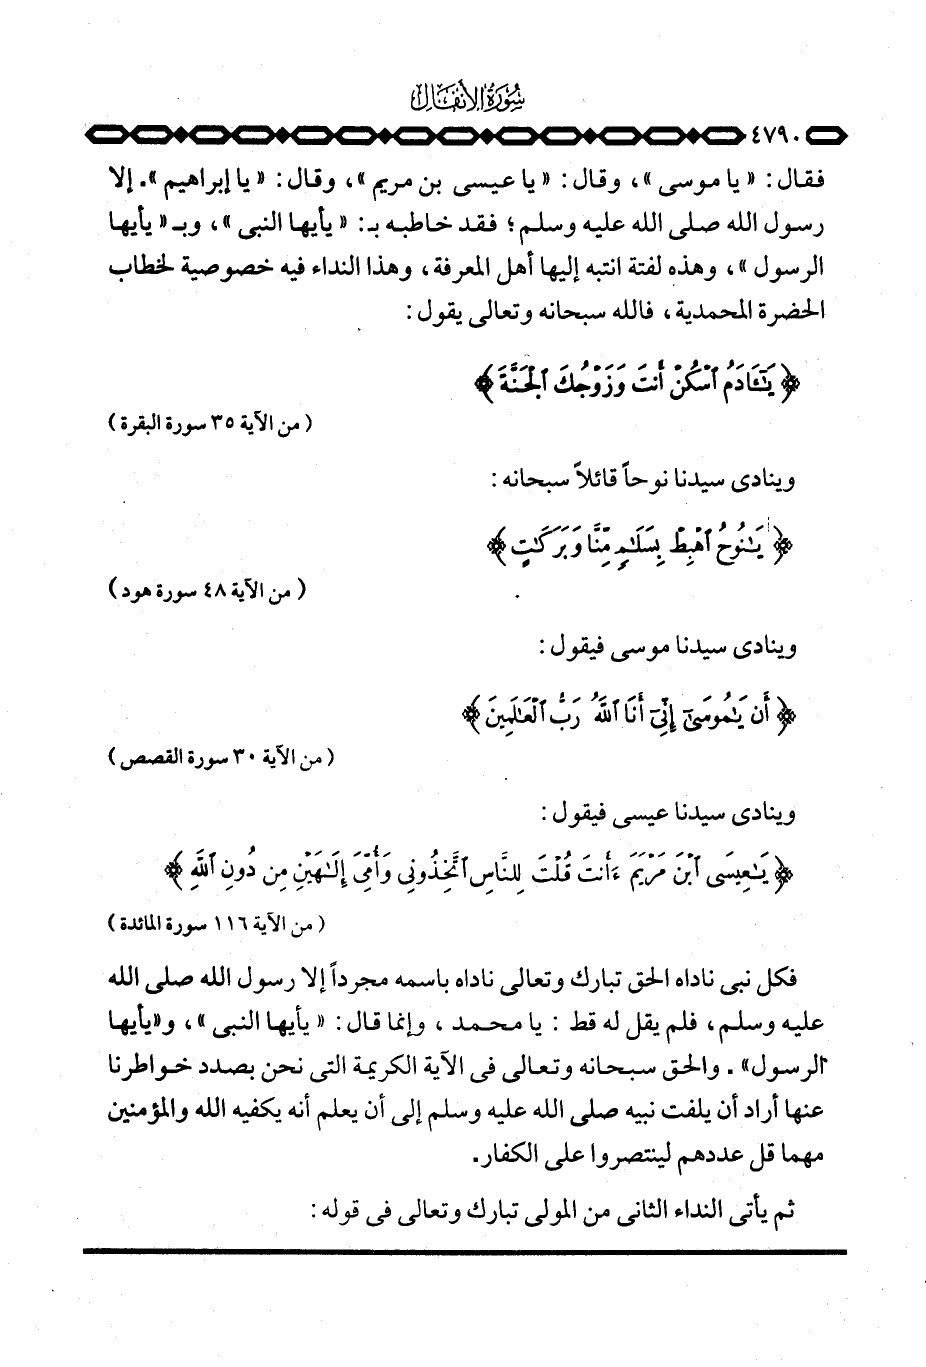 سورة الأنفال
٤٧٩٠
فقال : « يا موسى » ، وقال : « يا عيسى بن مريم » ، وقال : « يا إبراهيم » . إلا
رسول الله صلى الله عليه وسلم ؛ فقد خاطبه بـ : « يأيها النبى » ، وبـ « يأيها
الرسول » ، وهذه لفتة انتبه إليها أهل المعرفة ، وهذا النداء فيه خصوصية لخطاب
الحضرة المحمدية ، فالله سبحانه وتعالى يقول :
﴿ يَـٰٓـَٔادَمُ ٱسْكُنْ أَنتَ وَزَوْجُكَ ٱلْجَنَّةَ ﴾
( من الآية ٣٥ سورة البقرة )
وينادى سيدنا نوحاً قائلاً سبحانه :
﴿ يَـٰنُوحُ ٱهْبِطْ بِسَلَـٰمٍ مِّنَّا وَبَرَكَـٰتٍ ﴾
( من الآية ٤٨ سورة هود )
وينادى سيدنا موسى فيقول :
﴿ أَن يَـٰمُوسَىٰٓ إِنِّىٓ أَنَا ٱللَّهُ رَبُّ ٱلْعَـٰلَمِينَ ﴾
( من الآية ٣٠ سورة القصص )
وينادى سيدنا عيسى فيقول :
﴿ يَـٰعِيسَى ٱبْنَ مَرْيَمَ ءَأَنتَ قُلْتَ لِلنَّاسِ ٱتَّخِذُونِى وَأُمِّىَ إِلَـٰهَيْنِ مِن دُونِ ٱللَّهِ ﴾
( من الآية ١١٦ سورة المائدة )
فكل نبى ناداه الحق تبارك وتعالى ناداه باسمه مجرداً إلا رسول الله صلى الله
عليه وسلم ، فلم يقل له قط : يا محمد ، وإنما قال : « يأيها النبى » ، و«يأيها
الرسول» . والحق سبحانه وتعالى فى الآية الكريمة التى نحن بصدد خواطرنا
عنها أراد أن يلفت نبيه صلى الله عليه وسلم إلى أن يعلم أنه يكفيه الله والمؤمنين
مهما قل عددهم لينتصروا على الكفار.
ثم يأتى النداء الثانى من المولى تبارك وتعالى فى قوله :